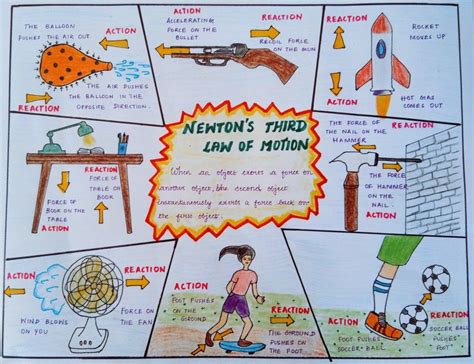 THE BALLOON
PUSHES THE AIR OUT
ACTION
THE AIR PUSHES
THE BALLOON IN THE
OPPOSITE DIRECTION.
REACTION
ACTION
ACCELERATING
FORCE ON THE
BULLET
REACTION
RECOIL FORCE
ON THE GUN
REACTION
ROCKET
MOVES UP
ACTION
HOT GAS
COMES OUT
NEWTON'S THIRD
LAW OF MOTION
When an object exerts a force on
another object, the second object
instantaneously exerts a force back on
the first object.
REACTION
FORCE OF
TABLE ON
BOOK
FORCE OF
BOOK ON THE
TABLE
ACTION
THE FORCE OF
THE NAIL ON THE
HAMMER
REACTION
THE FORCE
OF HAMMER
ON THE
NAIL.
ACTION
ACTION
WIND BLOWS
ON YOU
REACTION
FORCE ON
THE FAN
ACTION
FOOT PUSHES
ON THE
GROUND
REACTION
THE GROUND
PUSHES
ON THE FOOT
ACTION
FOOT PUSHES
SOCCER BALL
REACTION
SOCCER BALL
PUSHES
FOOT